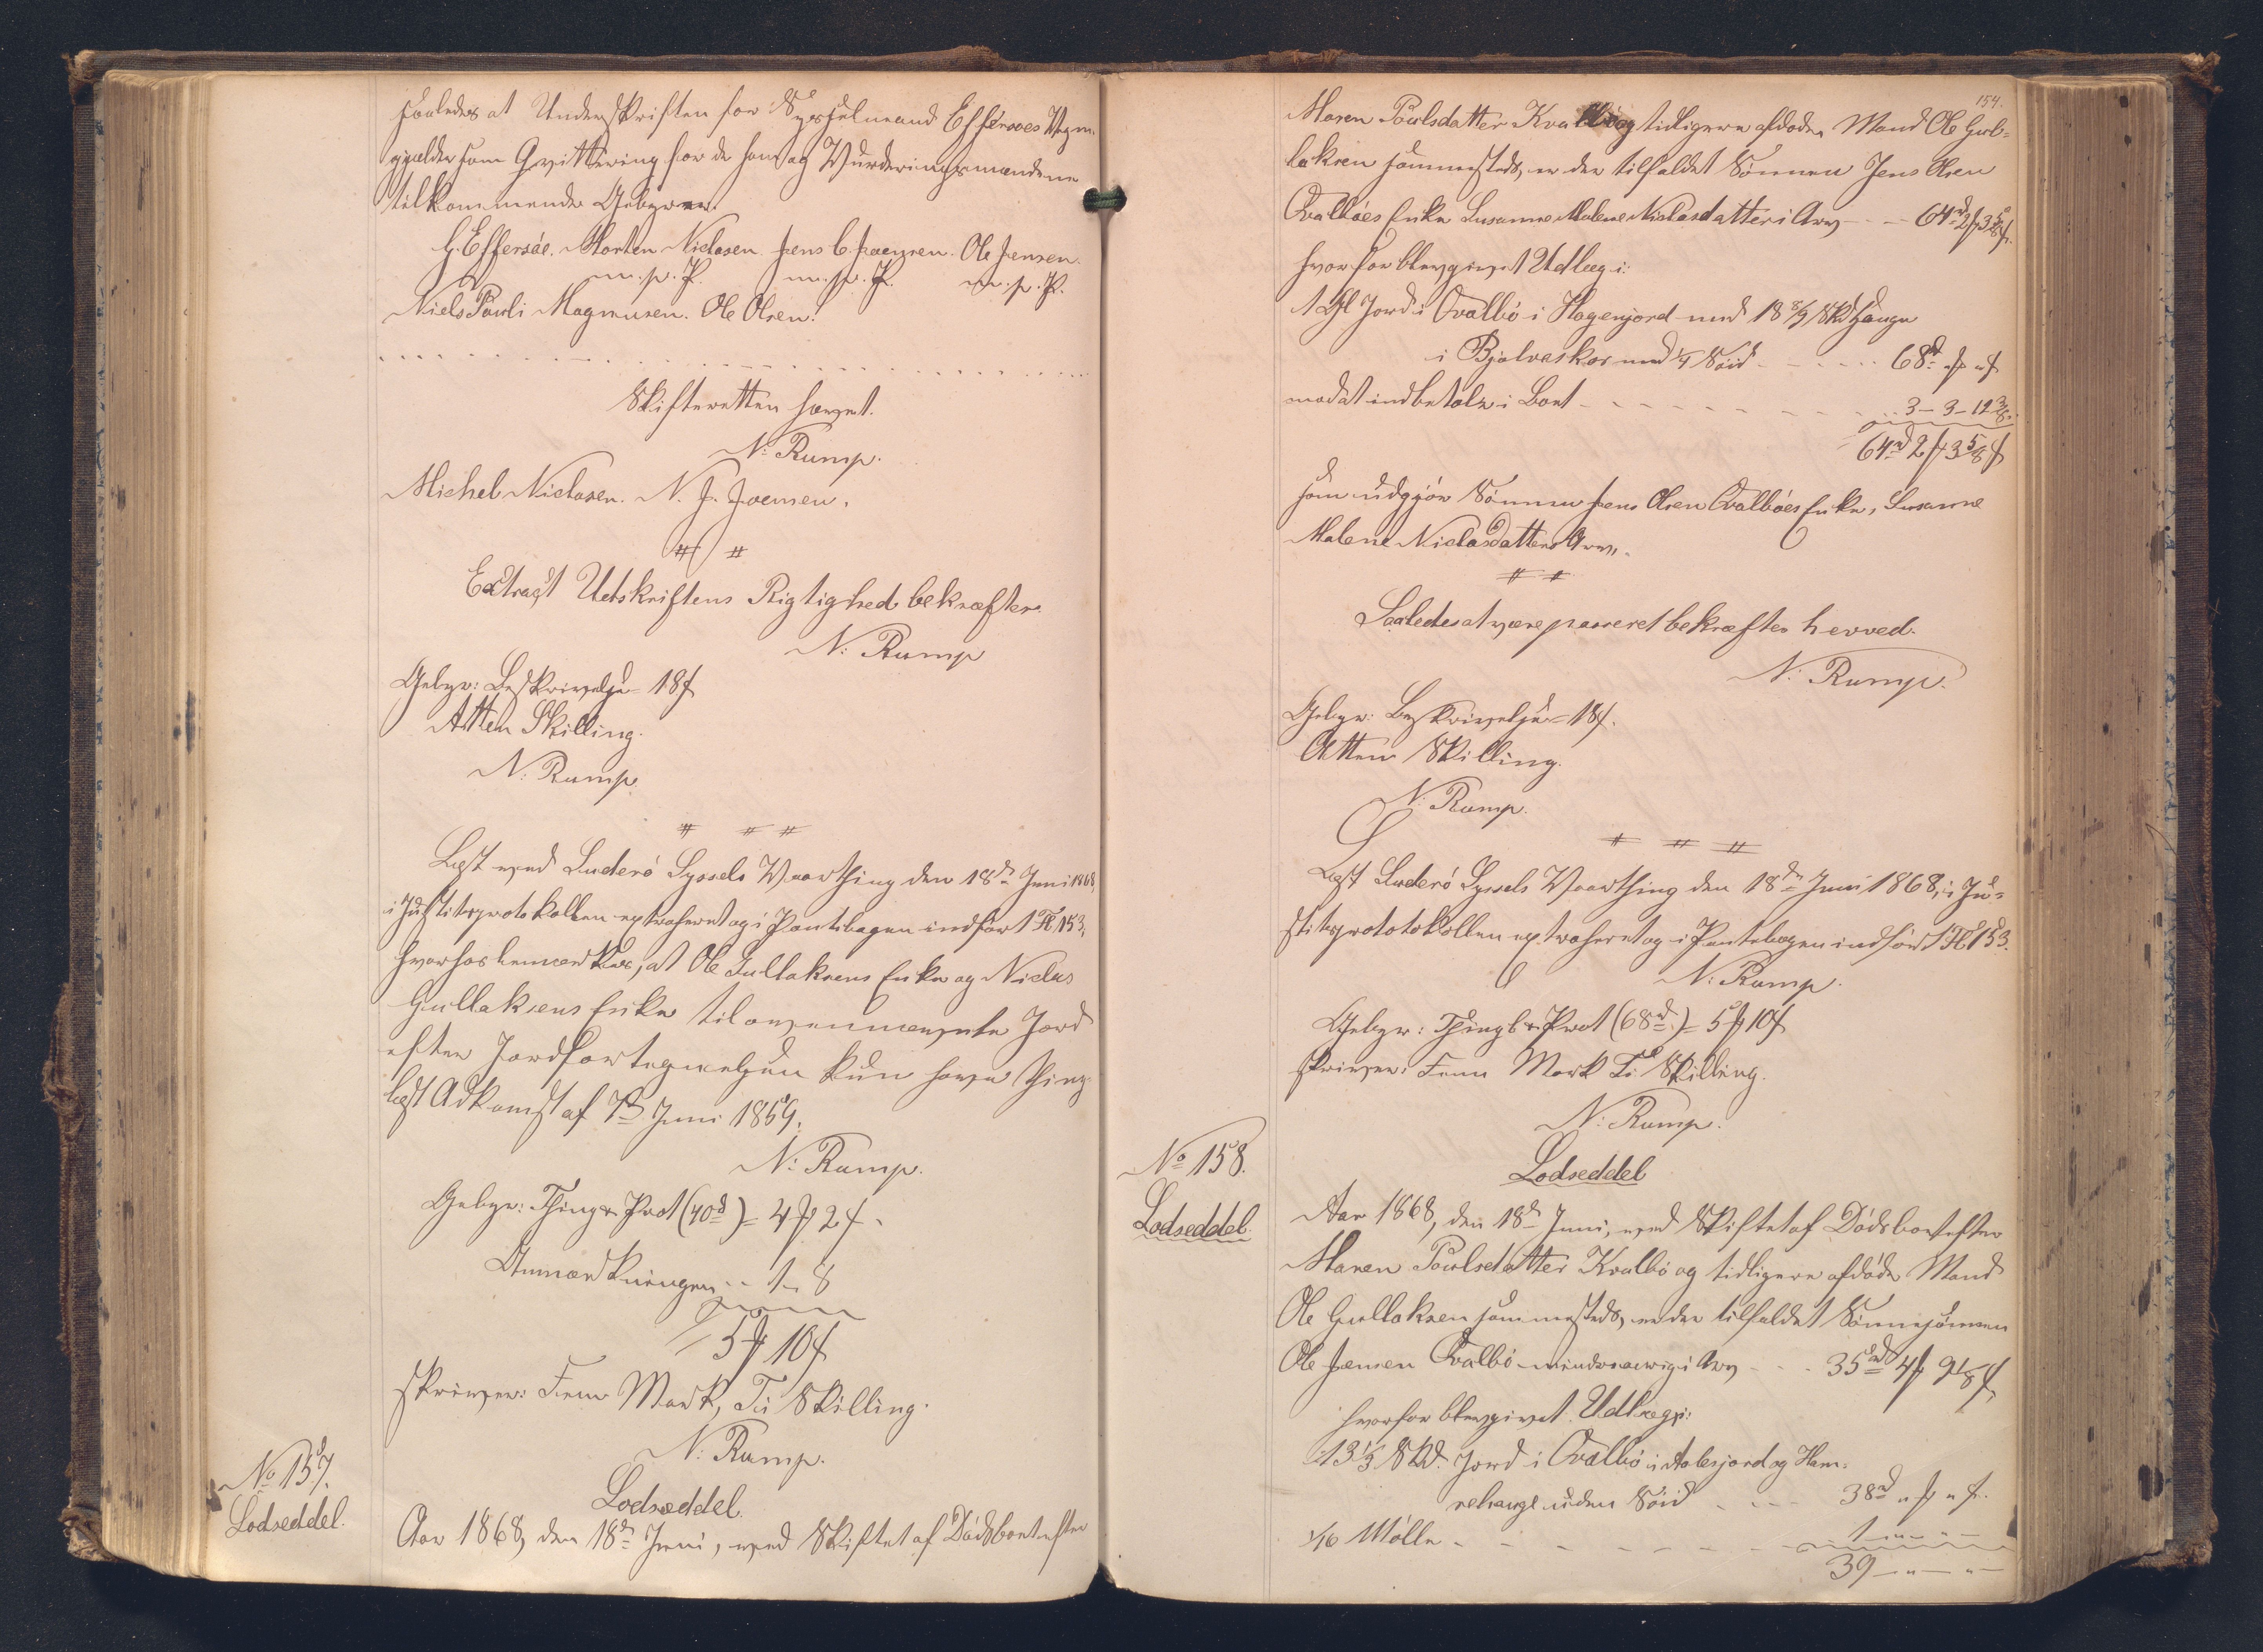 saaledes at Underskriften for Sysselmand Effersøes Vegn.
gjælder som Qvittering for de ham og Vurderingsmændene
tilkommende Gebyrer.
G. Effersøe. Morten Niclasen. Jens C. Joensen. Ole Jensen.
m. p. P. m. p. P. m. p. P.
Niels Pouli Magnusen. Ole Olsen.
Skifteretten hævet.
N: Rump.
Michel Niclasen. N. J. Joensen.
Extract Udskriftens Rigtighed bekræfter.
N: Rump
Gebyr: Beskrivelse 18 f
Atten Skilling.
N: Rump.
Læst ved Suderø Syssels Vaarthing den 18de Juni 1868,
i Justitsprotokollen extraheret og i Pantebogen indført Fol 153,
hvorhos bemærkes, at Ole Gullaksens Enke og Niclas
Gullaksens Enke til ovennævnte Jord
efter Jordfortegnelsen kun have thing-
læst Adkomst af 7de Juni 1859.
N: Rump.
Gebyr: Thing & Prot (40d) = 4 f 2 f
Anmærkningen - - 1 - 8
5 f 10 f
skriver: Fem Mark, Ti Skilling.
N: Rump.
No 157.
Lodseddel.
Lodseddel
Aar 1868, den 18de Juni, ved Skiftet af Dødsboet efter
154.
Maren Poulsdatter Kvalbø og tidligere afdøde Mand Ole Gul-
laksen sammesteds, er der tilfaldet Sønnen Jens Olsen
Qvalbøes Enke Susanne Malene Niclasdatter i Arv - - 64d 2 f 3 5/8 f.
hvorfor blev givet Udlæg i:
1 Gl Jord i Qvalbø i Hagenjord med 18 8/9 Skd Hauge
i Bjalveskor med 1/4 Søid - - - - 68d " f " f
mod at indbetale i Boet - - - - 3 - 3 - 12 3/8.
64d 2 f 3 5/8 f
som udgjør Sønnen Jens Olsen Qvalbøes Enke, Susanne
Malene Niclasdatters Arv.
Saaledes at være passeret bekræftes herved.
N: Rump.
Gebyr: Beskrivelse = 18 f.
Atten Skilling.
N: Rump.
Læst Suderø Syssels Vaarthing den 18de Juni 1868, i Ju-
stitsprototokollen extraheret og i Pantebogen indført Fol 153.
N: Rump.
Gebyr: Thingl & Prot (68d) = 5 f 10 f
skriver: Fem Mark Ti Skilling.
N: Rump.
No 158.
Lodseddel.
Lodseddel
Aar 1868, den 18de Juni, ved Skiftet af Dødsboet efter
Maren Poulsdatter Kvalbø og tidligere afdøde Mand
Ole Gullaksen sammesteds, er der tilfaldet Sønnesønnen
Ole Jensen Qvalbø mindreaarig i Arv - - - 35d 4 f 9 1/8 f,
hvorfor blev givet Udlæg i:
13 1/3 Skd. Jord i Qvalbø i Aolesjord og Ham-
rehauge uden Søid - - - 38d " f " f.
1/16 Mølle - - - - - 1 - " - " -
39 - " - " -